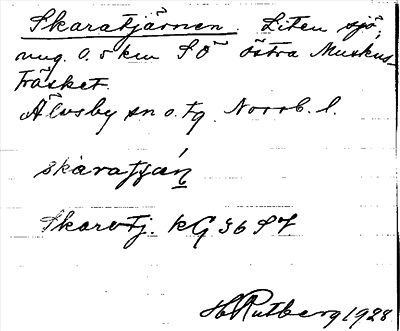 Skaratjärnen. Liten sjö,
ung. 0.5 km SÖ östra Muskus-
träsket.
Älvsby sn o. tg. Norrb. l.
skaratján
Skaratj. kG 36 SV
H Rutberg 1928